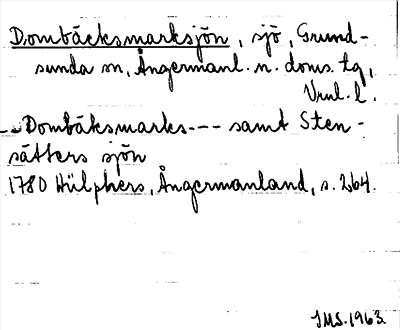 Dombäcksmarksjön, sjö, Grund-
sunda sn, Ångermanl. n. doms. tg,
Vnl. l.
--Dombäksmarks--- samt Sten-
sätters sjön
1780 Hülphers, Ångermanland, s. 264.
JMS. 1963.